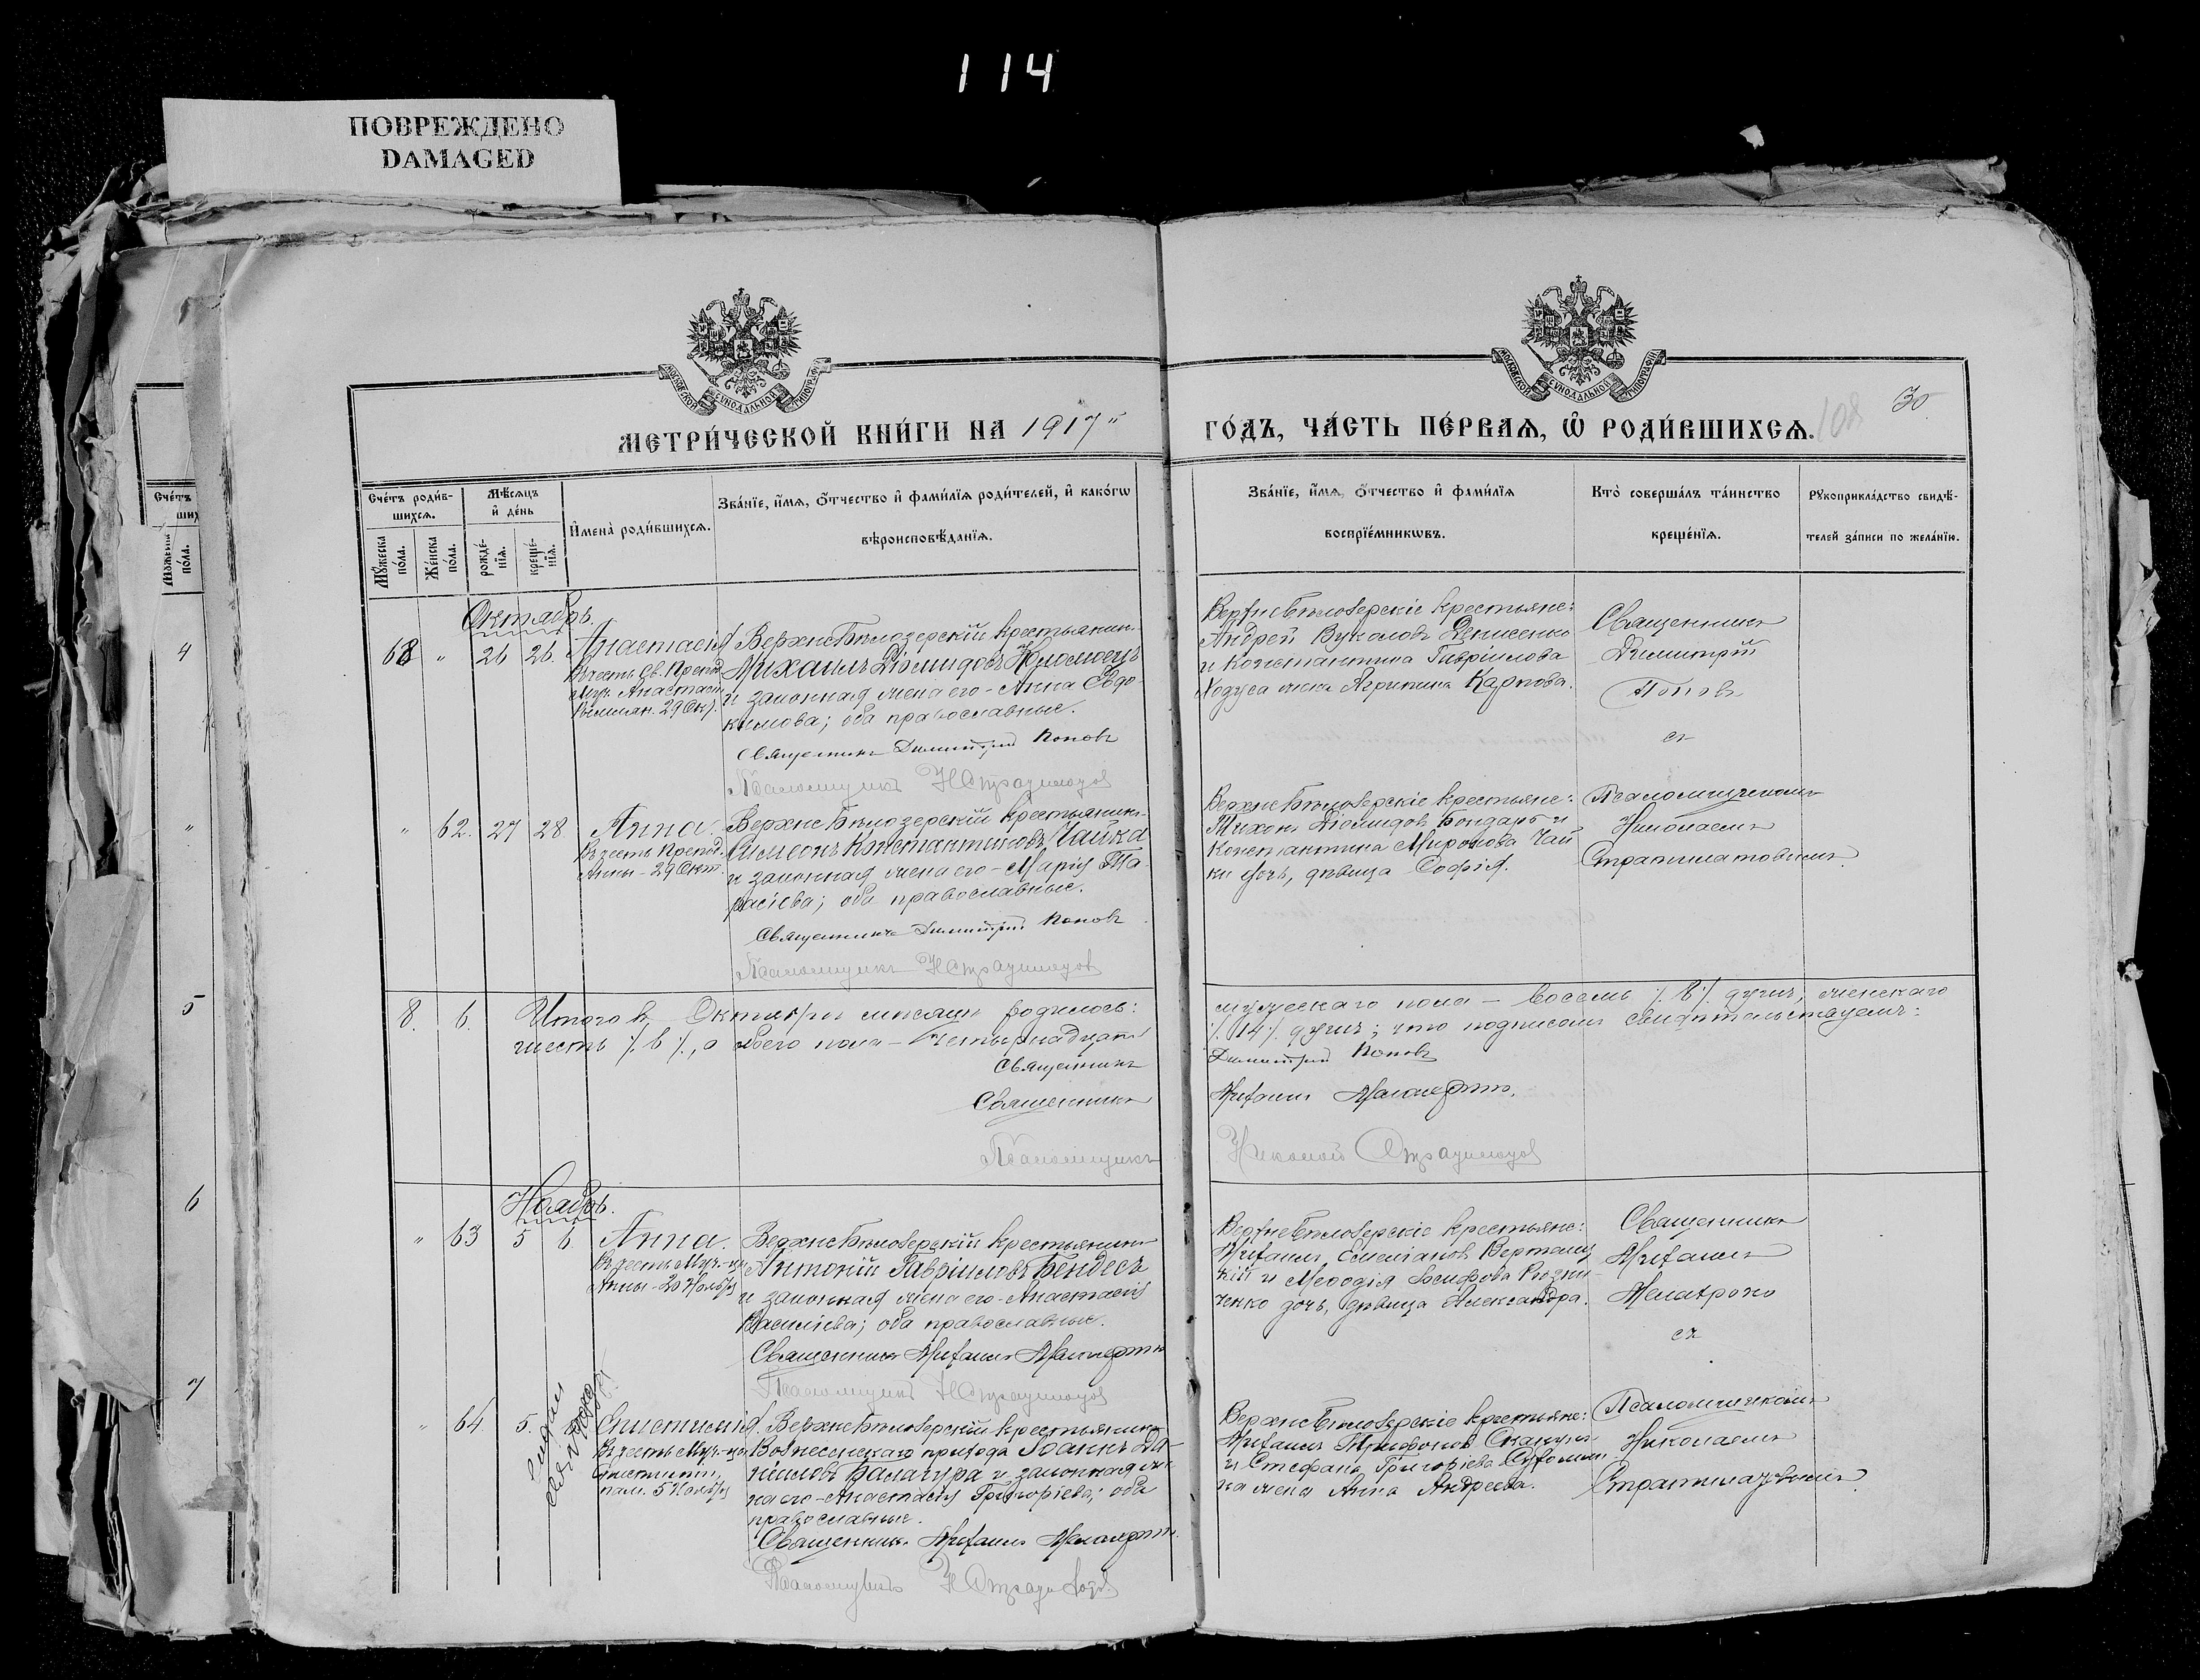 114
ПОВРЕЖДЕНО
DAMAGED
МОСКОВСКОЙ СѴНОДАЛЬНОЙ ТИПОГРАФІИ
МОСКОВСКОЙ СѴНОДАЛЬНОЙ ТИПОГРАФІИ
30
108
МЕТРИ́ЧЕСКОЙ КНИ́ГИ НА 1917"
ГО́ДЪ, ЧА́СТЬ ПЕ́РВАѦ, Ѽ РОДИ́ВШИХСѦ.
Сче́тъ роди́в-
шихсѧ.
Мꙋ́жеска по́ла.
Же́нска по́ла.
Мѣ́сѧцъ и҆ де́нь
рожде́-
нїѧ.
креще́-
нїѧ.
И҆мена̀ роди́вшихсѧ.
Зва́нїе, и҆́мѧ, ѻ҆́тчество и҆ фами́лїѧ роди́телей, и҆ како́гѡ
вѣроисповѣ́данїѧ.
Зва́нїе, и҆́мѧ, ѻ҆́тчество и҆ фами́лїѧ
воспрїе́мникѡвъ.
Кто̀ соверша́лъ та́инство
креще́нїѧ.
Рꙋкоприкла́дство свидѣ́-
телей за́писи по жела́нїю.
Октябрь.
" 26 26. Анастасія
Въ честь Св. Препод.
Муч. Анастасіи
Римлян. 29 Окт.
ВерхнеБѣлозерскій крестьянинъ
Михаилъ Діомидовъ
и законная жена его - Анна Евдо-
кимова; оба православные.
Священникъ Димитрій Поповъ
Псаломщикъ Н Стратилатовъ
ВерхнеБѣлозерскіе крестьяне:
Андрей Вуколовъ Денисенко
и Константина Гавріилова
Ходуса жена Агрипина Карпова.
Священникъ
Димитрій
Поповъ
съ
Псаломщикомъ
Николаемъ
Стратилатовымъ.
" 62. 27 28 Анна.
Въ честь Препод.
Анны - 29 Окт.
ВерхнеБѣлозерскій крестьянинъ
Симеонъ Константиновъ Чайка
и законная жена его - Марія Та-
расіева; оба православные.
Священникъ Димитрій Поповъ
Псаломщикъ Н Стратилатовъ
ВерхнеБѣлозерскіе крестьяне:
Тихонъ Діомидовъ Бондарь и
Константина Миронова Чай
ки дочь, дѣвица Софія.
8. 6. Итого въ Октябрѣ мѣсяцѣ родилось:
мужескаго пола - восемь /.8/. душъ, женскаго
шесть /.6/., а обоего пола - четырнадцать
/.14/. душъ; что подписомъ свидѣтельствуемъ:
Священникъ Димитрій Поповъ
Священникъ Михаилъ
Псаломщикъ Николай Стратилатовъ
Ноябрь.
" 63 5 6 Анна.
Въ честь Муч.-цы
Анны - 20 Ноября
ВерхнеБѣлозерскій крестьянинъ
Антоній Гавріиловъ Бендесъ
и законная жена его - Анастасія
Василіева; оба православные.
Священникъ Михаилъ
Псаломщикъ Н Стратилатовъ
ВерхнеБѣлозерскіе крестьяне:
Михаилъ Емеліановъ
кій и Меѳодія Іосифова
ченко дочь, дѣвица Александра.
Священникъ
Михаилъ
съ
Псаломщикомъ
Николаемъ
Стратилатовымъ.
" 64 5.
Епистимія.
Въ честь Муч.-цы
Епистиміи,
пам. 5 Ноября
ВерхнеБѣлозерскій крестьянинъ
Вознесенскаго прихода Іоаннъ Да-
ніиловъ Балагура и законная же-
на его - Анастасія Григоріева; оба
православные.
Священникъ Михаилъ
Псаломщикъ Н Стратилатовъ
ВерхнеБѣлозерскіе крестьяне:
Михаилъ Трифоновъ
и Стефана Григоріева
на жена Анна Андреева.
Сче́тъ
ших
Мꙋ́жеска
по́ла.
4
"
5
6
7